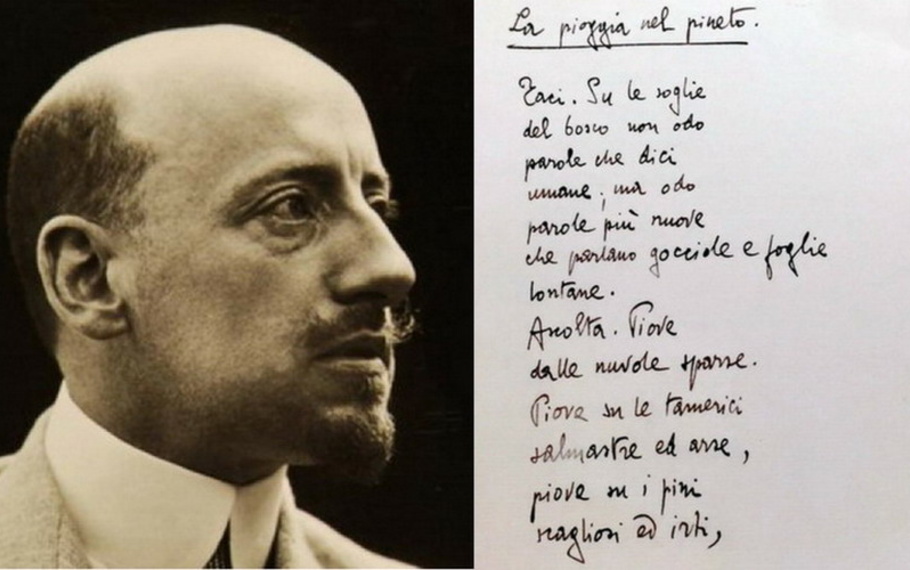 La pioggia nel pineto.
Taci. Su le soglie
del bosco non odo
parole che dici
umane; ma odo
parole più nuove
che parlano gocciole e foglie
lontane.
Ascolta. Piove
dalle nuvole sparse.
Piove su le tamerici
salmastre ed arse,
piove su i pini
scagliosi ed irti,